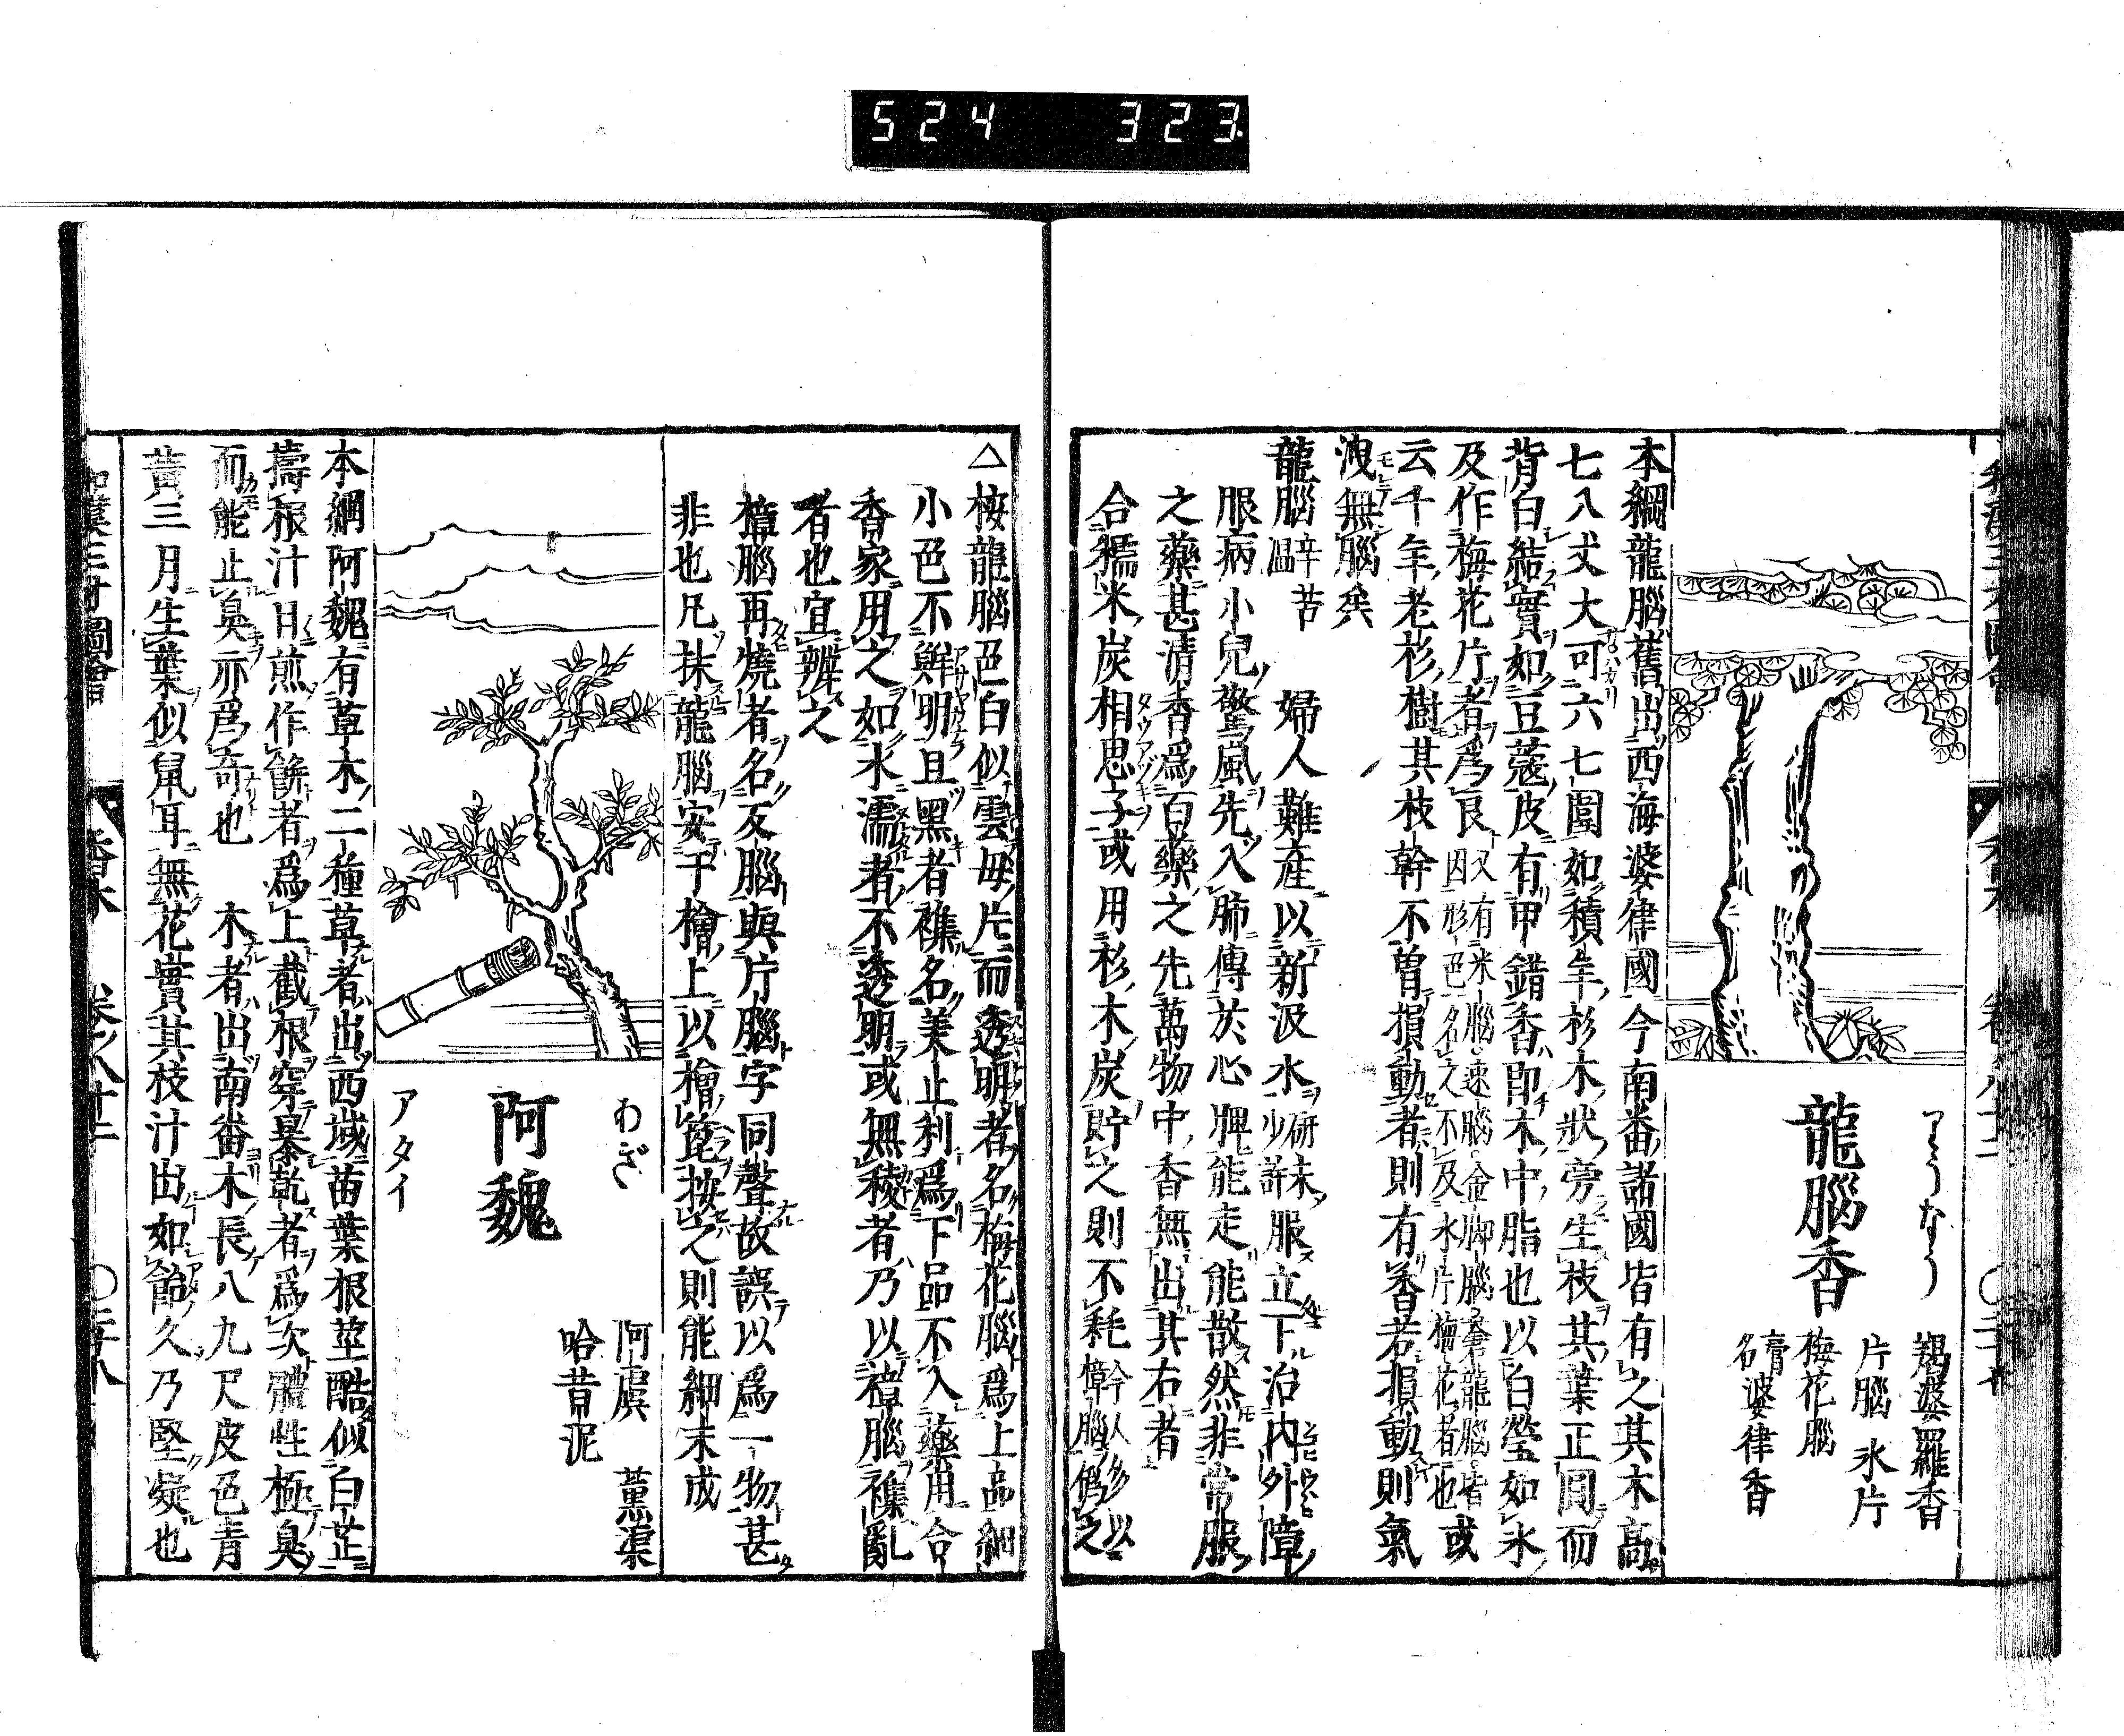 524 323
龍腦香
りうなう
羯婆羅香
片腦 氷片
梅花腦
膏名婆律香
本綱龍腦舊出西海婆律國今南畨諸國皆有之其木高
七八丈大可六七圍如積年杉木狀旁生枝其葉正圓而
背白結實如豆蔻皮有甲錯香即木中脂也以白瑩如氷
及作梅花片者爲良又有米腦速腦金脚腦蒼龍腦皆因形色名之不及氷片梅花者也或
云千年老杉樹其枝幹不曽損動者則有香若損動則氣
洩無腦矣
龍腦辛苦温 婦人難産以新汲水研末少許服立下治内外障
服病小兒驚風先入肺傳於心脾能走能散然非常服
之藥甚清香爲百藥之先萬物中香無出其右者
合糯米炭相思子或用杉木炭貯之則不耗今人多以樟腦僞之
△桉龍腦色白似雲母片而透明者名梅花腦爲上品細
小色不鮮明且黑者襍名美止利爲下品不入藥用合
香家用之如水濡者不透明或無稜者乃以樟腦襍亂
者也宜辨之
樟腦再燒者名反腦與片腦字同聲故誤以爲一物甚
非也凡抹龍腦安于檜上以檜箆按之則能細末成
阿魏
わぎ
アタイ
阿虞 薫渠
哈昔泥
本綱阿魏有草木二種草者出西域苗葉根莖酷似白芷
擣根汁日煎作餅者爲上截根穿暴乾者爲次體性極臭
而能止臭亦爲奇也 木者出南畨木長八九尺皮色青
黃三月生葉似鼠耳無花實其枝汁出如飴久乃堅凝也
和漢三才圖會 香木 卷之八十二